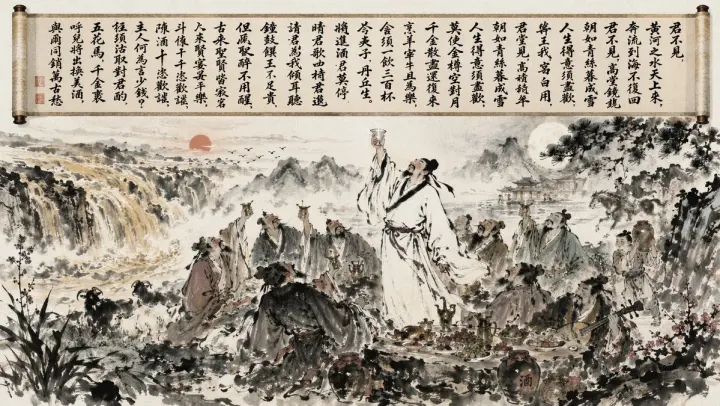 君不見,
黃河之水天上來,
奔流到海不復回
君不見,高堂鏡
朝如青絲暮成雪
人生得意須盡歡,
我,用,
君堂見,高
朝如青絲暮成雪
人生得意須盡歡,
莫使金樽空對月
千金散盡還復來
烹羊宰牛且為樂
會須一飲三百杯
岑夫子,丹丘生,
將進酒君莫停
君歌君進
請君為我傾耳聽
鐘鼓饌王不足貴
但願醉不用醒
古來聖賢皆寂名
來賢宴平樂,
斗十千恣歡謔,
酒十千恣歡謔,
主人何為言少錢?
徑須沽取對君酌,
五花馬,千金裘
呼兒將出換美酒
與爾同銷萬古愁
酒